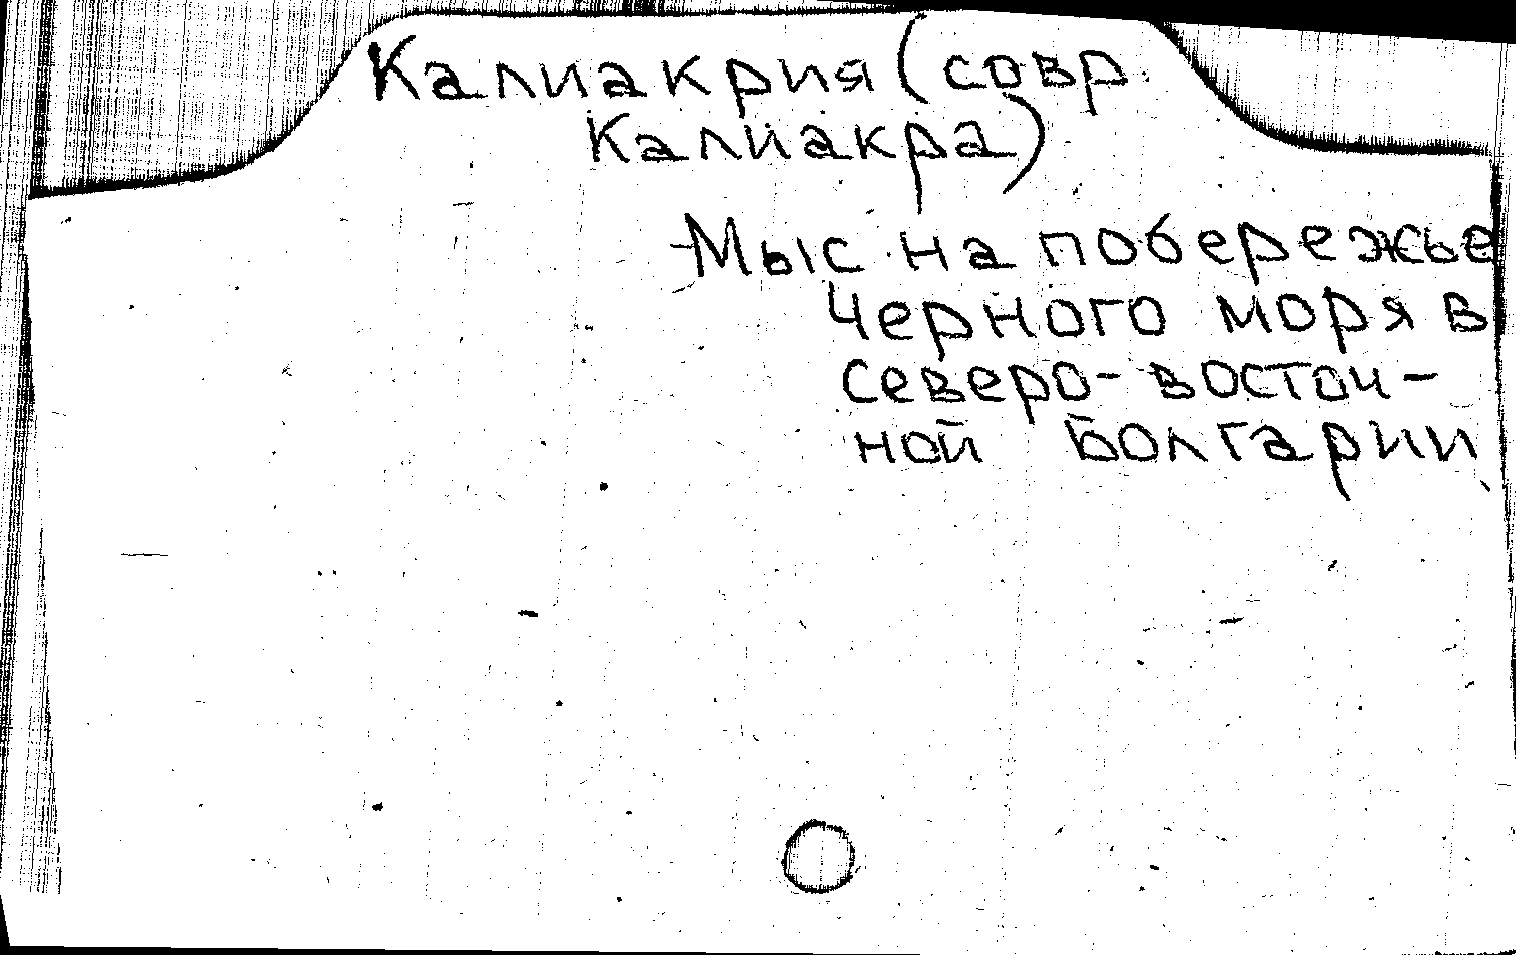 Калиакрия (совр.
Калиакра)
Мыс на побережье
Черного моря в
северо-восточ-
ной Болгарии